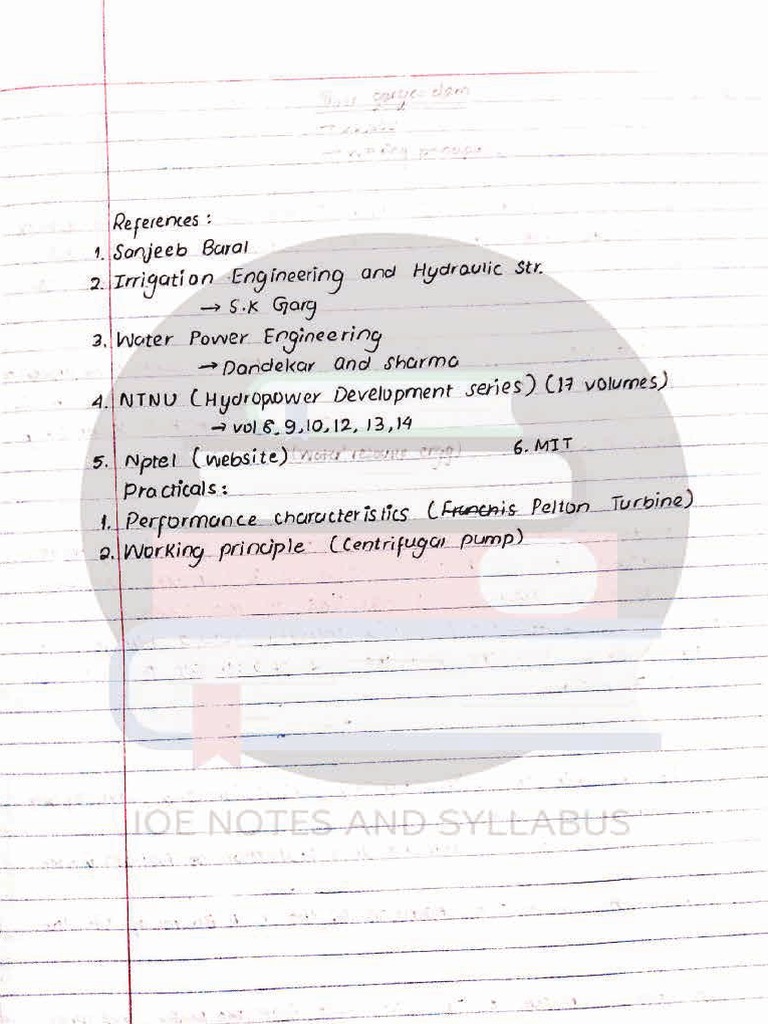 gorge dam
References:
1. Sanjeeb Baral
2. Irrigation Engineering and Hydraulic Str.
→ S.K Garg
3. Water Power Engineering
→ Dandekar and Sharma
4. NTNU (Hydropower Development series) (17 volumes)
→ vol 8, 9, 10, 12, 13, 14
5. Nptel (website) (Water resource engg) 6. MIT
Practicals:
1. Performance characteristics (Franchis Pelton Turbine)
2. Working principle (Centrifugal pump)
IOE NOTES AND SYLLABUS